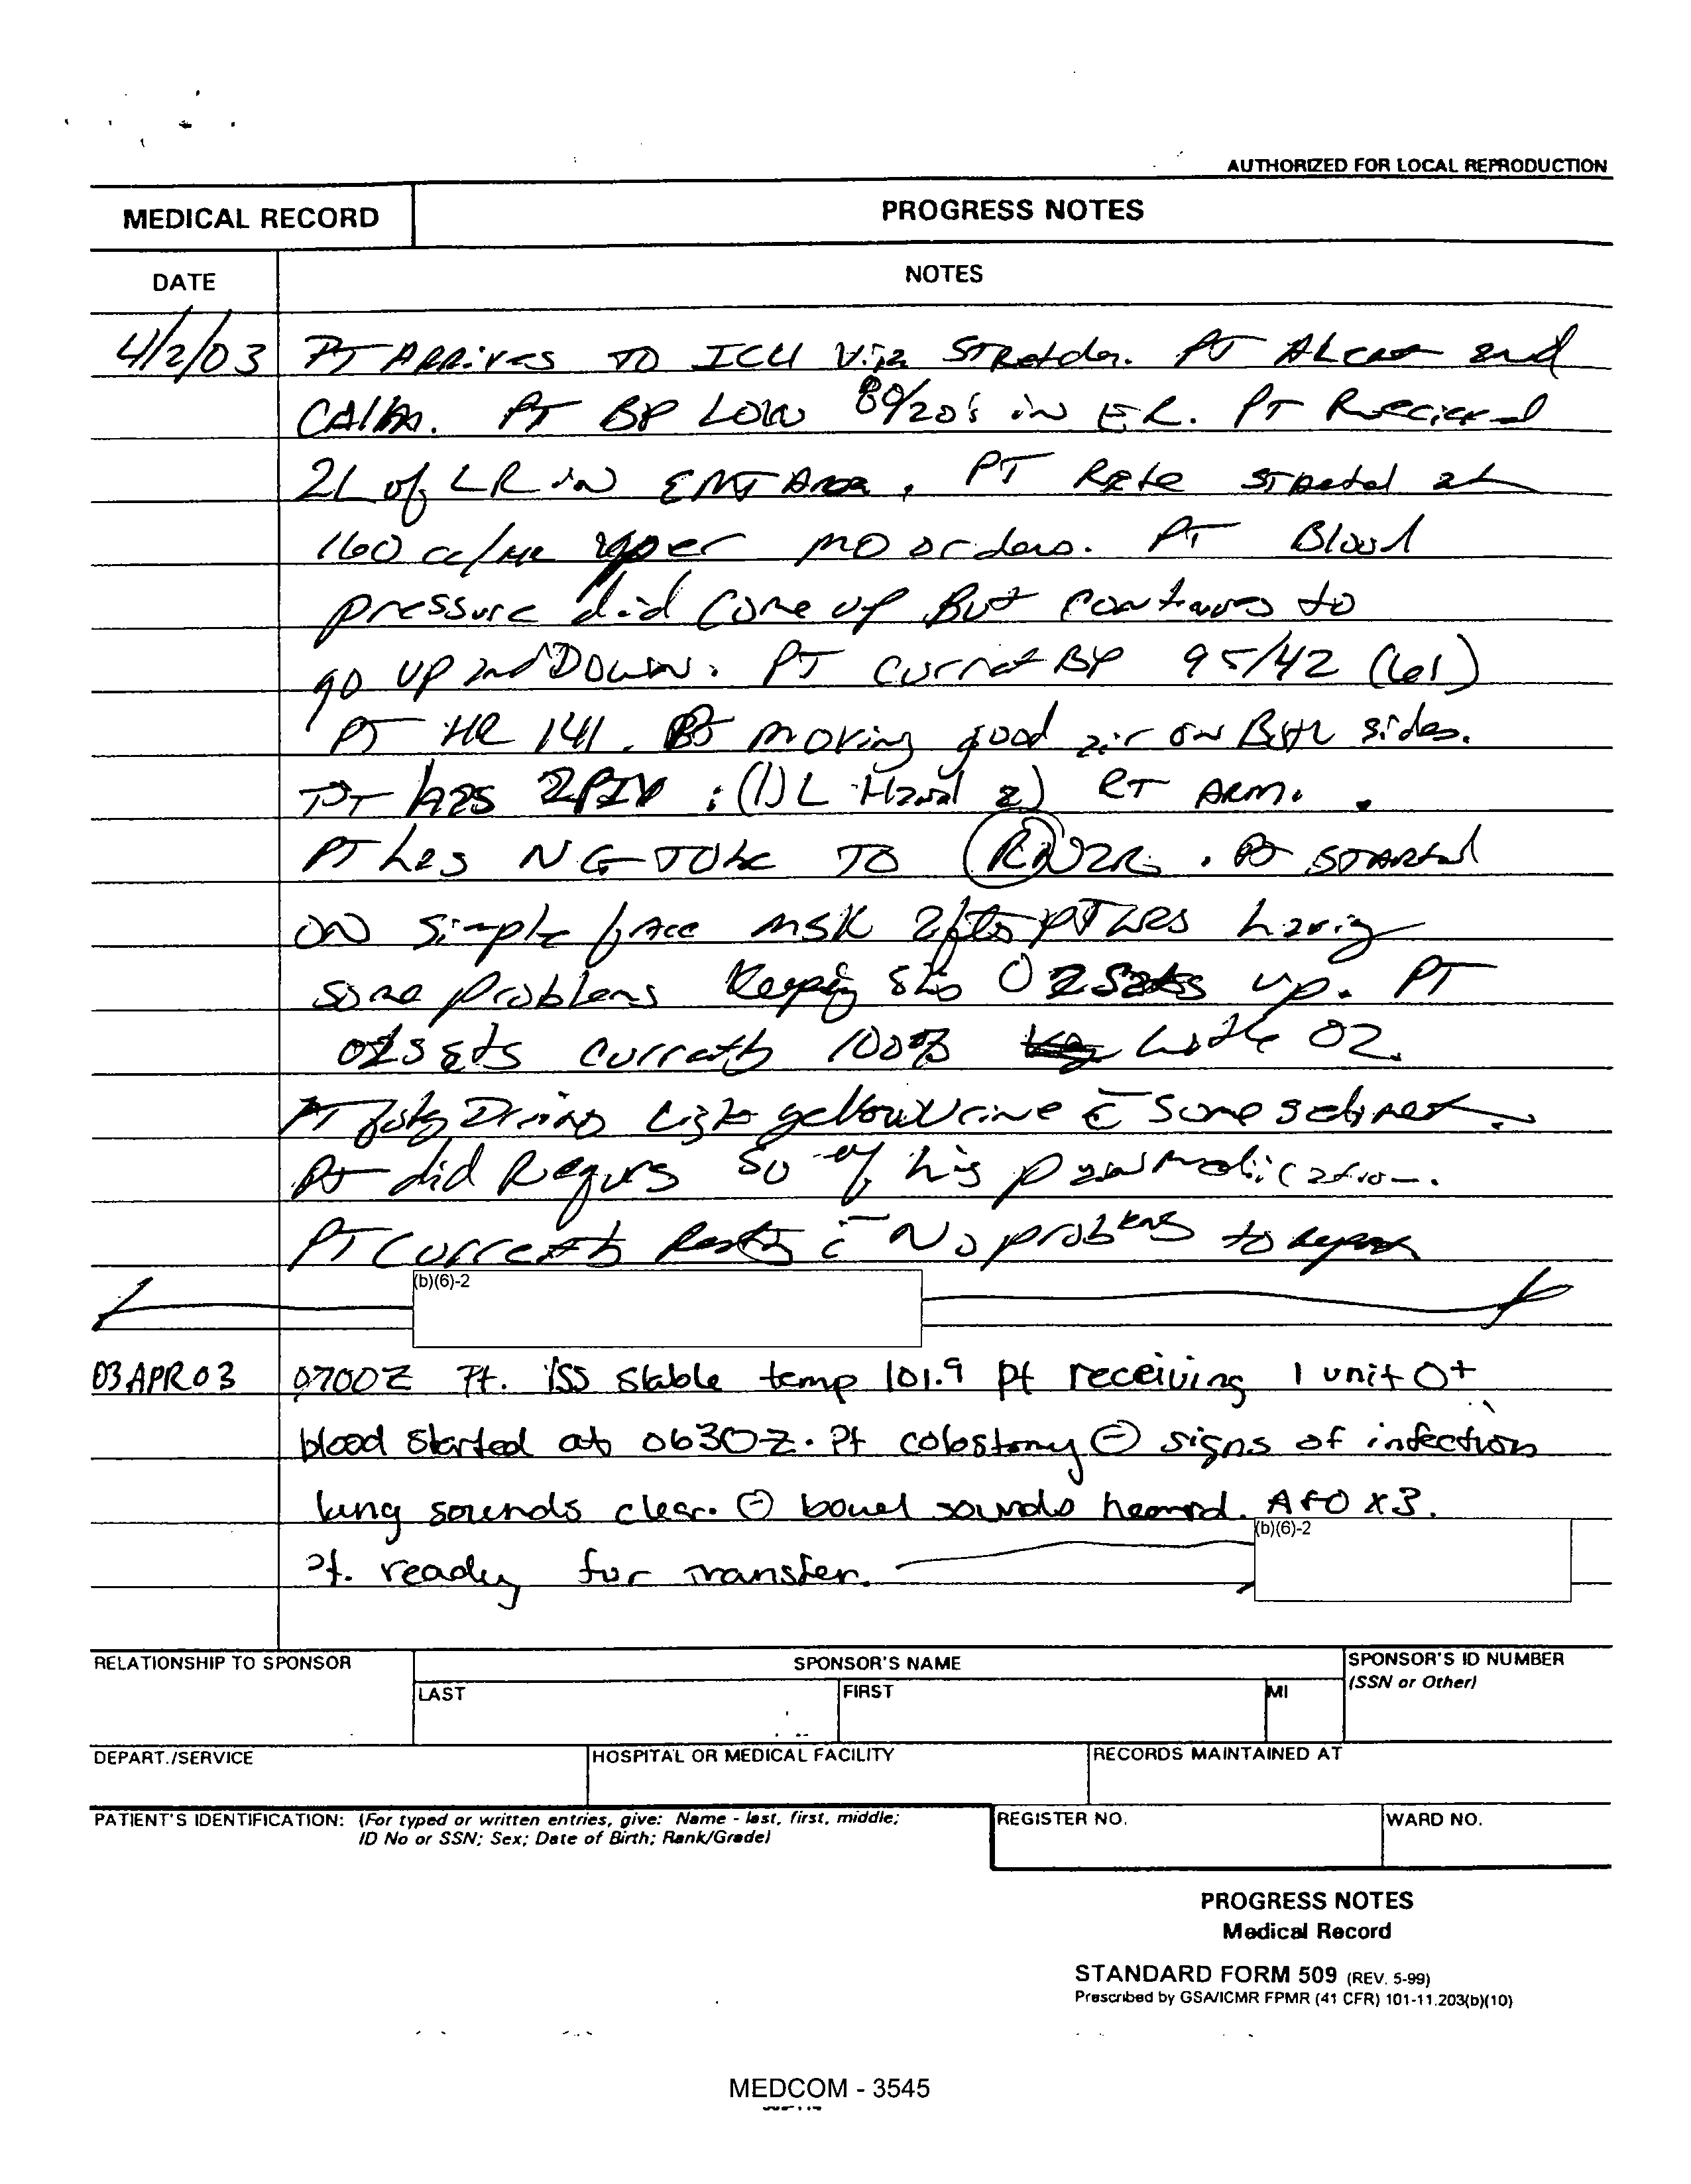 AUTHORIZED FOR LOCAL REPRODUCTION
MEDICAL RECORD
PROGRESS NOTES
DATE
NOTES
4/2/03 PT ARRives TO ICU Via STRetcher. PT ALert and
CAlm. PT BP LOW 80/20's in ER. PT Recieved
2L of LR in EMT Area, PT Rate started at
160 cc/HR per MD orders. PT Blood
pressure did Come up But continues to
go up and Down. PT current BP 95/42 (61)
PT HR 141. PT moving good air on Both sides.
PT has 2 PIV : (1) L Hand 2) RT ARM.
PT has NG TUbe TO (R) NaR. PT STARted
ON Simple face msk after PT was having
some problems Keeping his O2 Sats up. PT
O2 sats currently 100% with the O2.
PT foley Drining Light yellow Urine c̄ some sediment.
PT did Requrs 50 of his pain medication.
PT Currently Resting c̄ No problems to report
(b)(6)-2
03 APR 03 0700Z Pt. ISS stable temp 101.9 pt receiving 1 unit O+
blood started at 0630Z. Pt colostomy ⊖ signs of infection
lung sounds clear. ⊖ bowel sounds heard. A+O x3.
(b)(6)-2
Pt. ready for transfer.
RELATIONSHIP TO SPONSOR
SPONSOR'S NAME
SPONSOR'S ID NUMBER
(SSN or Other)
LAST
FIRST
MI
DEPART./SERVICE
HOSPITAL OR MEDICAL FACILITY
RECORDS MAINTAINED AT
PATIENT'S IDENTIFICATION: (For typed or written entries, give: Name - last, first, middle;
ID No or SSN; Sex; Date of Birth; Rank/Grade)
REGISTER NO.
WARD NO.
PROGRESS NOTES
Medical Record
STANDARD FORM 509 (REV. 5-99)
Prescribed by GSA/ICMR FPMR (41 CFR) 101-11.203(b)(10)
MEDCOM - 3545